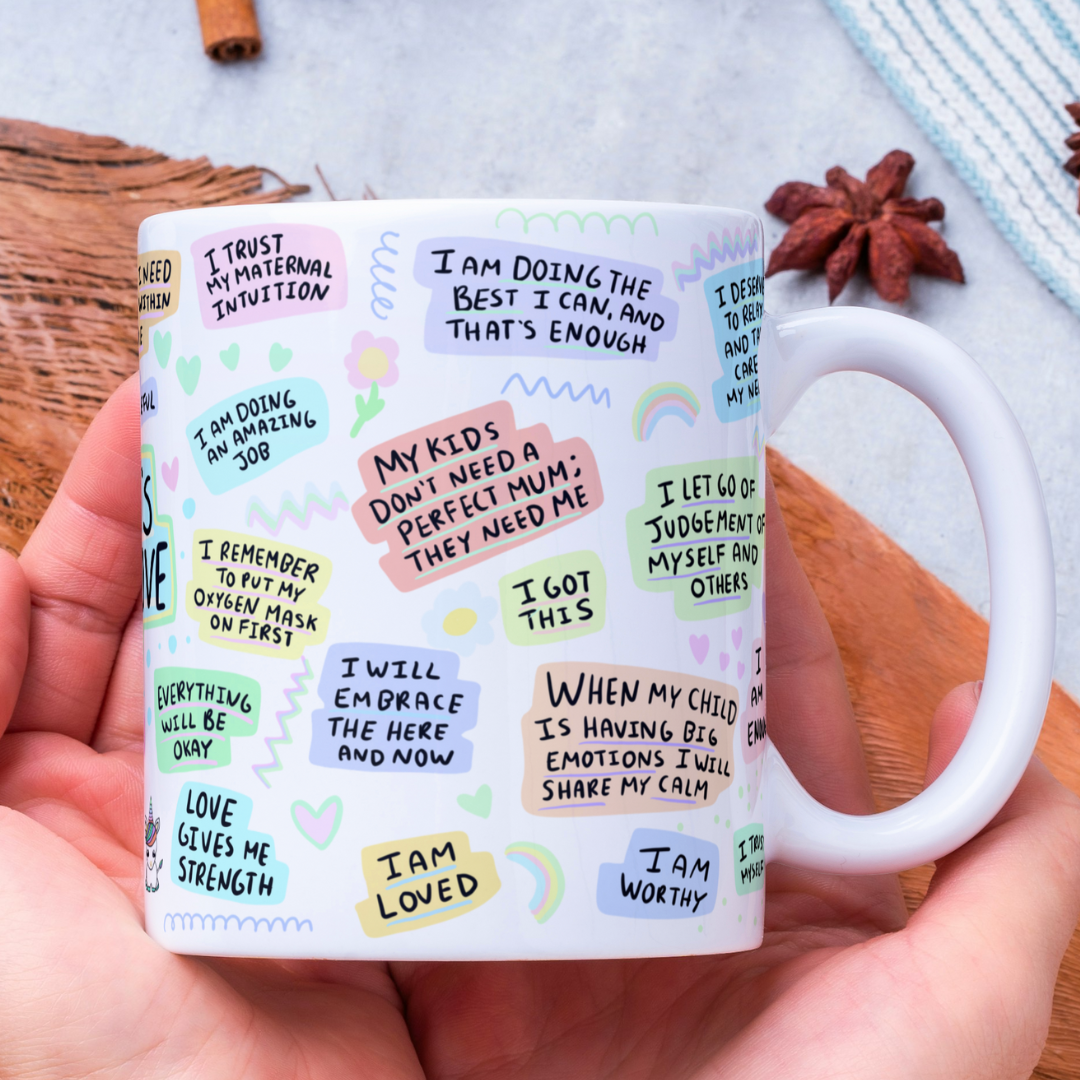 I NEED
WITHIN
I TRUST
MY MATERNAL
INTUITION
I AM DOING THE
BEST I CAN, AND
THAT'S ENOUGH
I DESERVE
TO RELAX
AND
CARE
MY
I AM DOING
AN AMAZING
JOB
MY KIDS
DON'T NEED A
PERFECT MUM;
THEY NEED ME
I LET GO OF
JUDGEMENT OF
MYSELF AND
OTHERS
I REMEMBER
TO PUT MY
OXYGEN MASK
ON FIRST
I GOT
THIS
EVERYTHING
WILL BE
OKAY
I WILL
EMBRACE
THE HERE
AND NOW
WHEN MY CHILD
IS HAVING BIG
EMOTIONS I WILL
SHARE MY CALM
I
AM
LOVE
GIVES ME
STRENGTH
I AM
LOVED
I AM
WORTHY
I TRUST
MYSELF